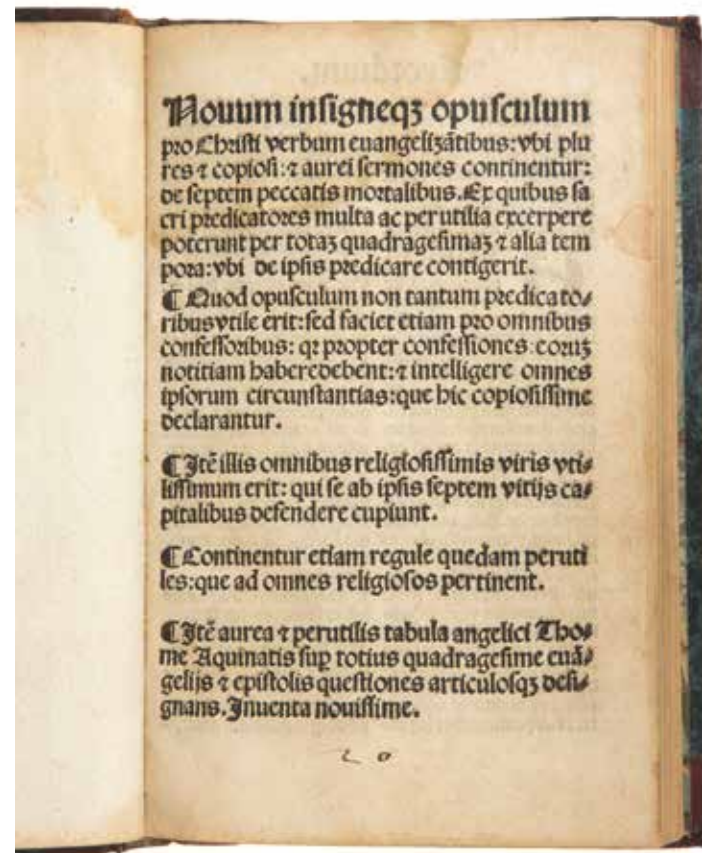 Nouum insigneqꝫ opusculum
pro Christi verbum euangelizãtibus: vbi plu
res ⁊ copiosi: ⁊ aurei sermones continentur:
de septem peccatis mortalibus. Ex quibus sa
cri predicatores multa ac perutilia excerpere
poterunt per totaꝫ quadragesimaꝫ ⁊ alia tem
pora: vbi de ipsis predicare contigerit.
¶ Quod opusculum non tantum predicato⸗
ribus vtile erit: sed faciet etiam pro omnibus
confessoribus: qꝛ propter confessiones eoruꝫ
notitiam habere debent: ⁊ intelligere omnes
ipsorum circunstantias: que hic copiosissime
declarantur.
¶ Itẽ illis omnibus religiosissimis viris vti⸗
lissimum erit: qui se ab ipsis septem vitijs ca⸗
pitalibus defendere cupiunt.
¶ Continentur etiam regule quedam peruti
les: que ad omnes religiosos pertinent.
¶ Itẽ aurea ⁊ perutilis tabula angelici Tho⸗
me Aquinatis sup totius quadragesime euã⸗
gelijs ⁊ epistolis questiones articulosqꝫ desi⸗
gnans. Inuenta nouissime.